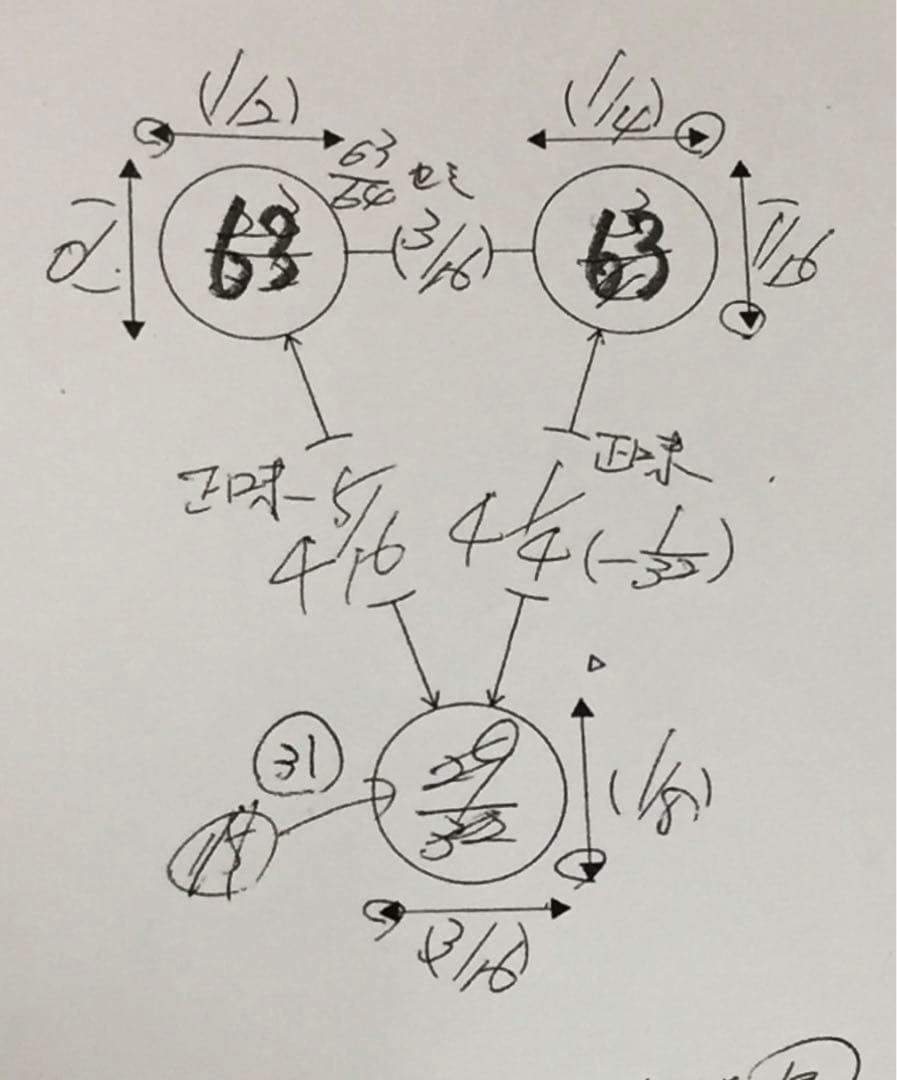 (1/2)
(1/4)
63/64 セミ
0
63
(3/16)
63
1/16
正味
正味
4 5/16
4 1/4 (-1/32)
31
29/32
(1/8)
(3/16)